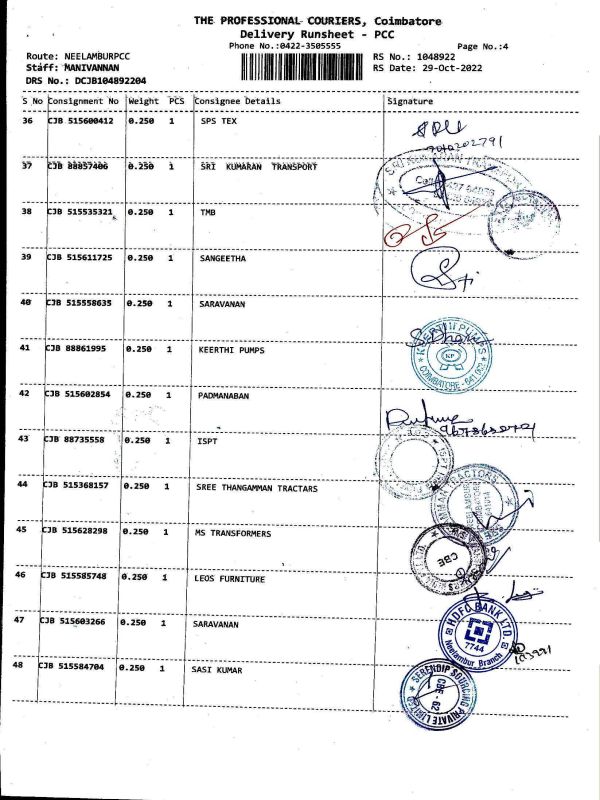 THE PROFESSIONAL COURIERS, Coimbatore
Delivery Runsheet - PCC
Phone No.:0422-3505555 Page No.:4
Route: NEELAMBURPCC RS No.: 1048922
Staff: MANIVANNAN RS Date: 29-Oct-2022
DRS No.: DCJB104892204
S No Consignment No Weight PCS Consignee Details Signature
36 CJB 515600412 0.250 1 SPS TEX
37 CJB 88857406 0.250 1 SRI KUMARAN TRANSPORT
38 CJB 515535321 0.250 1 TMB
39 CJB 515611725 0.250 1 SANGEETHA
40 CJB 515558635 0.250 1 SARAVANAN
41 CJB 88861995 0.250 1 KEERTHI PUMPS
KEERTHI PUMPS
KP
COIMBATORE
42 CJB 515602854 0.250 1 PADMANABAN
43 CJB 88735558 0.250 1 ISPT
44 CJB 515368157 0.250 1 SREE THANGAMMAN TRACTARS
45 CJB 515628298 0.250 1 MS TRANSFORMERS
CBE
46 CJB 515585748 0.250 1 LEOS FURNITURE
47 CJB 515603266 0.250 1 SARAVANAN
HDFC BANK LTD.
7744
Neelambur Branch
48 CJB 515584704 0.250 1 SASI KUMAR
SERENDIP SOURCING PRIVATE LIMITED
CBE - 62